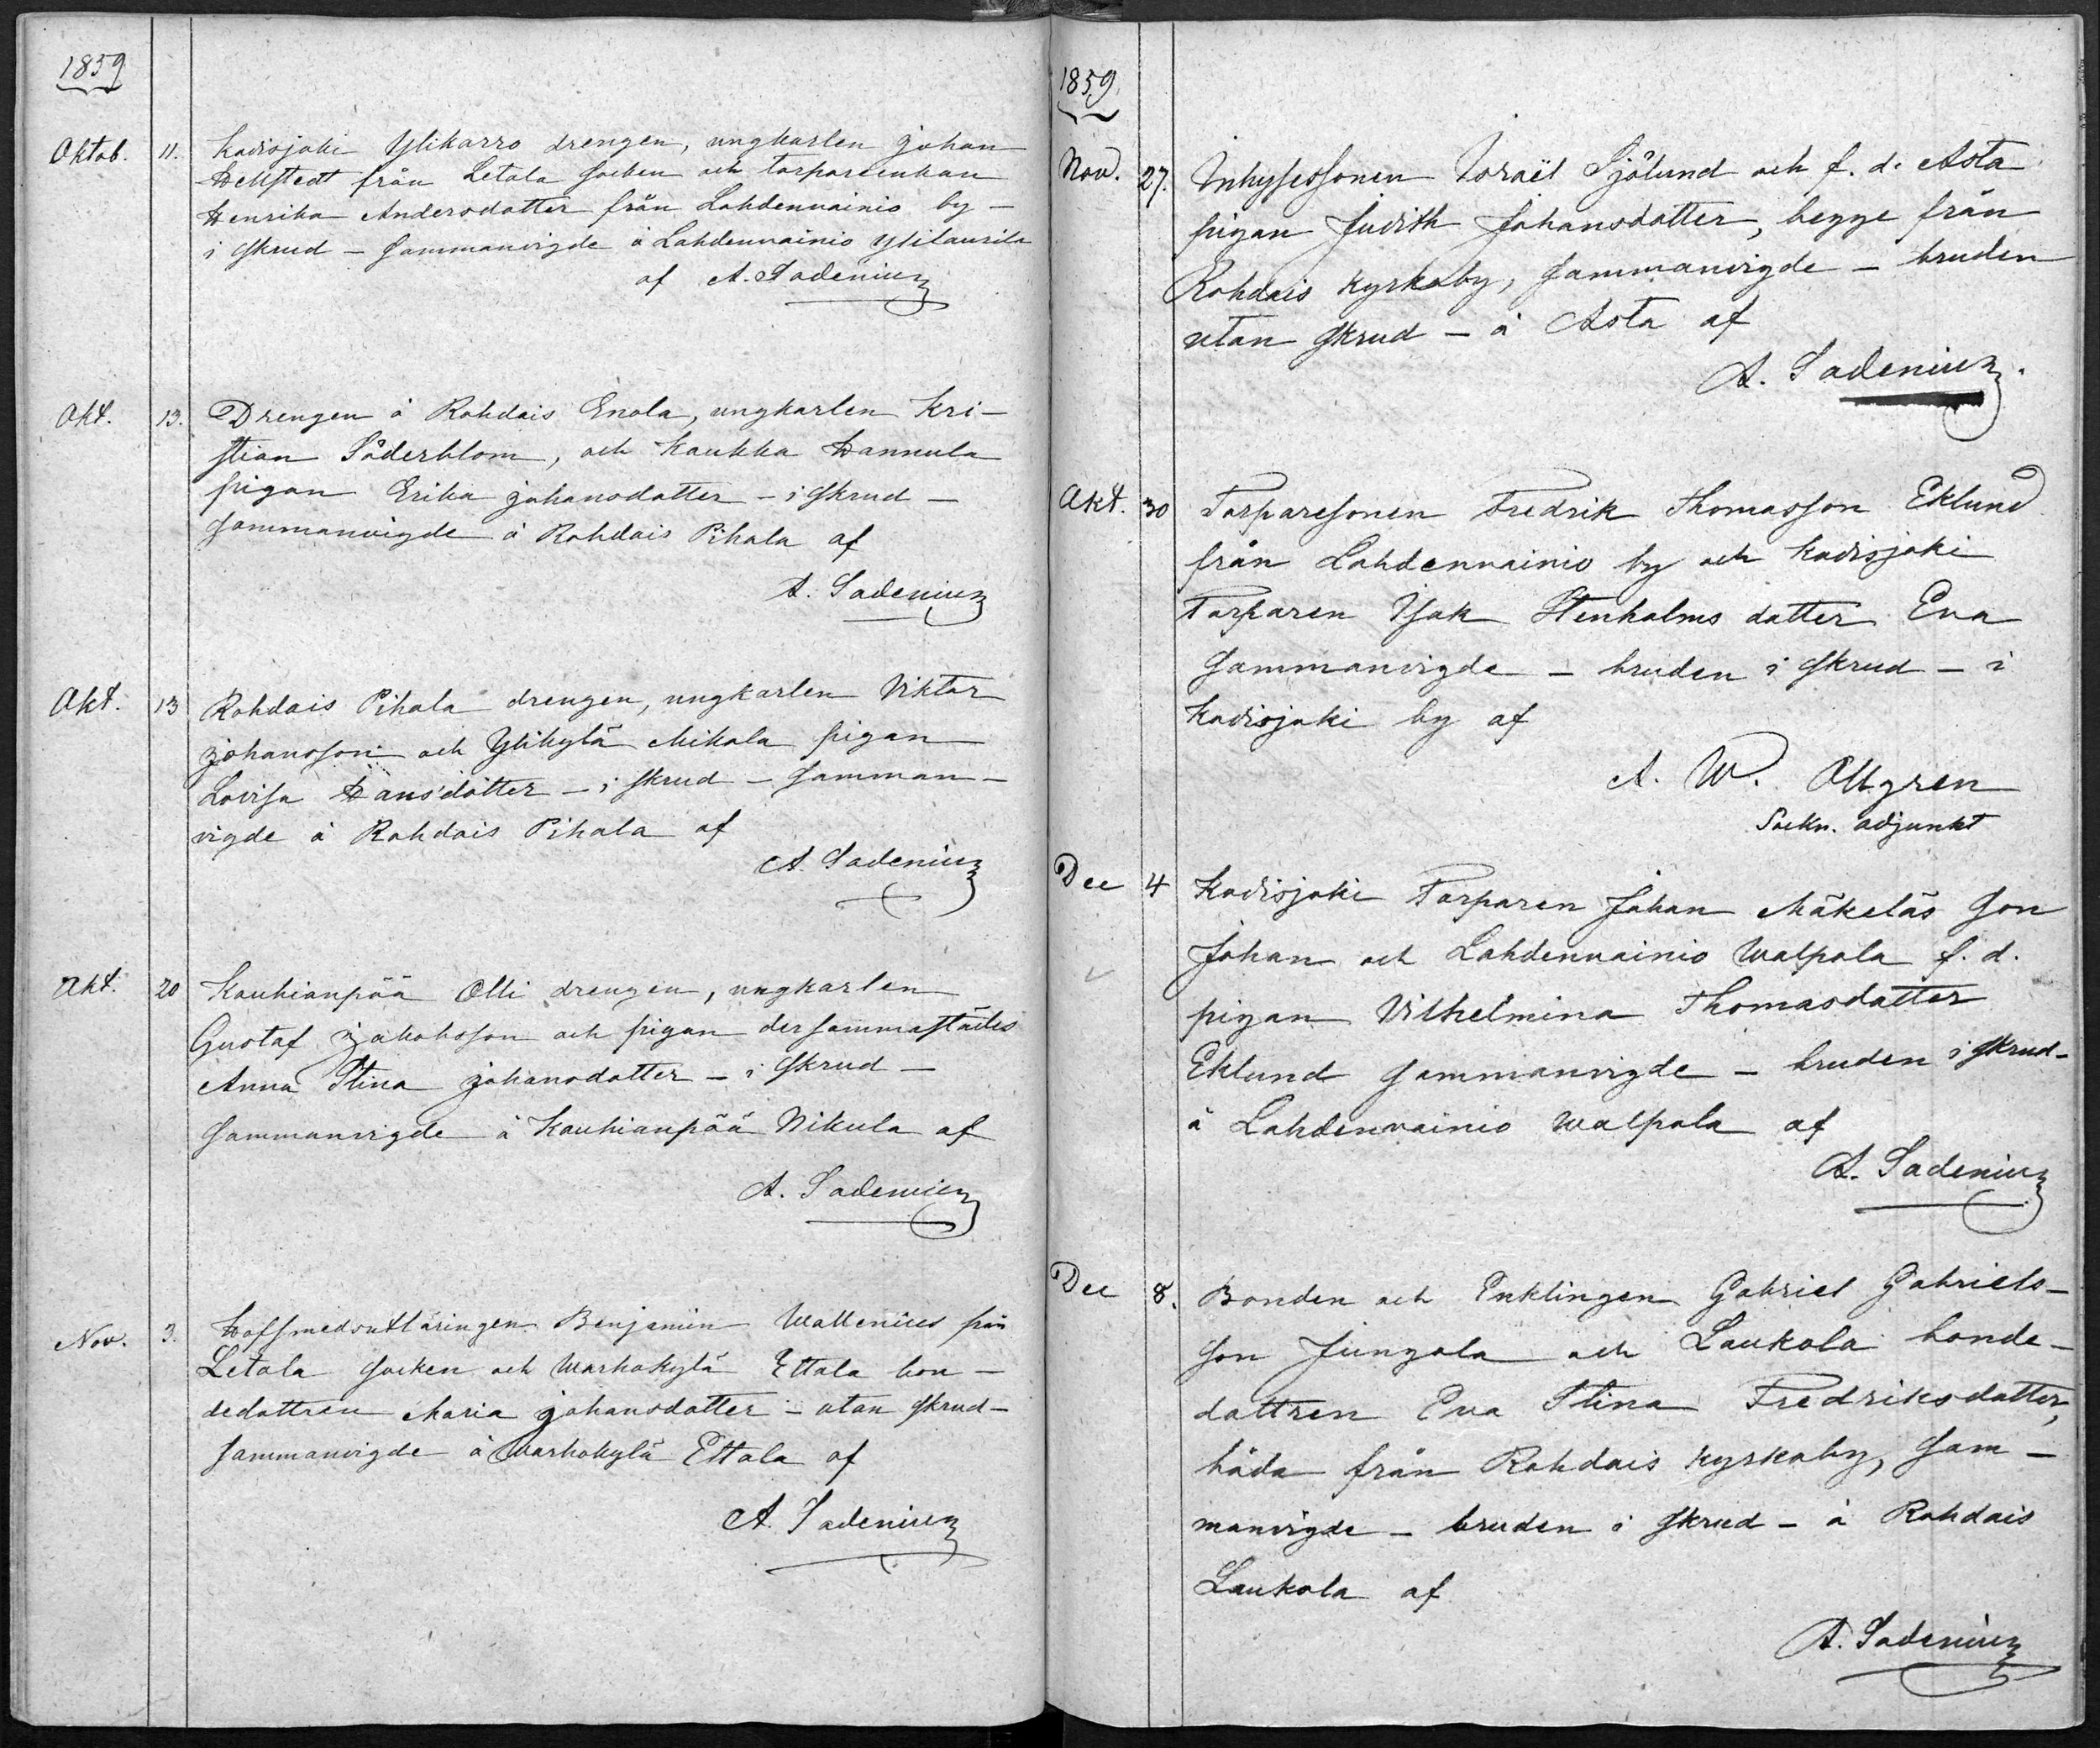 1859
Oktob. 11. Kodisjoki Ylikarro drengen, ungkarlen Johan
Hellstedt från Letala socken och torpareenkan
Henrika Andersdotter från Lahdenvainio by –
i skrud – sammanvigde å Lahdenvainio Ylilaurila
af A. Sadenius
Okt. 13. Drengen å Rohdais Enola, ungkarlen Kri-
stian Söderblom, och Kaukka Hannula
pigan Erika Johansdotter – i skrud –
sammanvigde å Rohdais Pihala af
A. Sadenius
Okt. 13 Rohdais Pihala drengen, ungkarlen Viktor
Johansson och Ylikylä Mikola pigan
Lovisa Hansdotter – i skrud – samman-
vigde å Rohdais Pihala af
A. Sadenius
Okt. 20 Kauhianpää Olli drengen, ungkarlen
Gustaf Jakobsson och pigan dersammastädes
Anna Stina Johansdotter – i skrud –
sammanvigde å Kauhianpää Nikula af
A. Sadenius
Nov. 3. Benjamin Wallenius från
Letala socken och Warhokylä Ettala bon-
dedottren Maria Johansdotter – utan skrud –
sammanvigde å Warhokylä Ettala af
A. Sadenius
1859
Nov. 27. Inhysessonen Israël Sjölund och f. d. Asta
pigan Judith Johansdotter, begge från
Rohdais kyrkoby, sammanvigde – bruden
utan skrud – å Asta af
A. Sadenius.
Okt. 30 Torparesonen Fredrik Thomasson Eklund
från Lahdenvainio by och Kodisjoki
Torparen Isak Stenholms dotter Eva
sammanvigde – bruden i skrud – i
Kodisjoki by af
A. W. Ollgren
Sockn. adjunkt
Dec 4 Kodisjoki Torparen Johan Mäkeläs son
Johan och Lahdenvainio Walpola f. d.
pigan Vilhelmina Thomasdotter
Eklund sammanvigde – bruden i skrud –
å Lahdenvainio Walpola af
A. Sadenius
Dec 8. Bonden och Enklingen Gabriel Gabriels-
son Jungola och Laukola bonde-
dottren Eva Stina Fredriksdotter,
båda från Rohdais kyrkoby, sam-
manvigde – bruden i skrud – å Rohdais
Laukola af
A. Sadenius